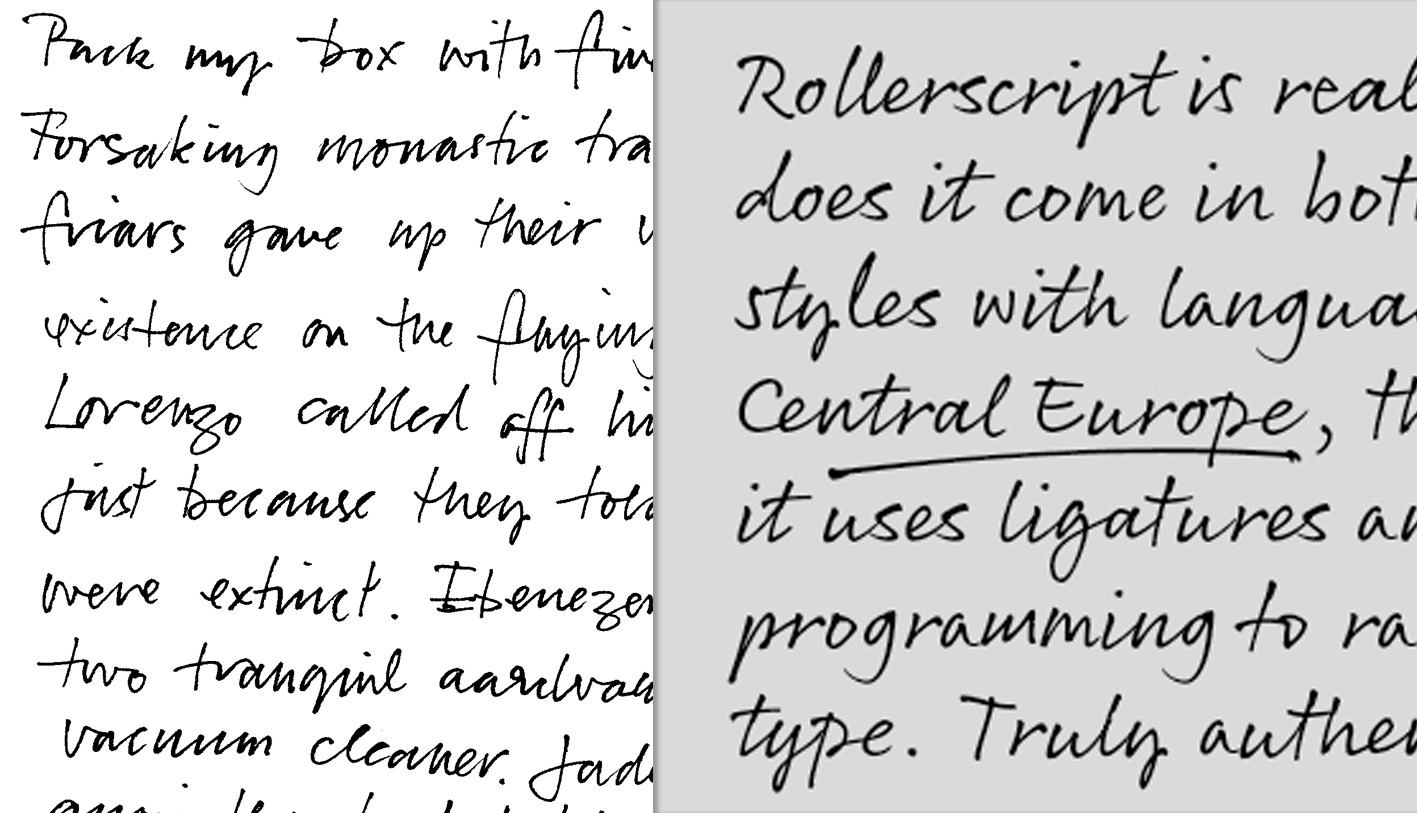 Pack my box with fiv
Forsaking monastic tra
friars gave up their v
existence on the flying
Lorenzo called off hi
just because they told
were extinct. Ebenezer
two tranquil aardvar
vacuum cleaner. Jade
Rollerscript is real
does it come in both
styles with langua
Central Europe, th
it uses ligatures an
programming to ra
type. Truly authen